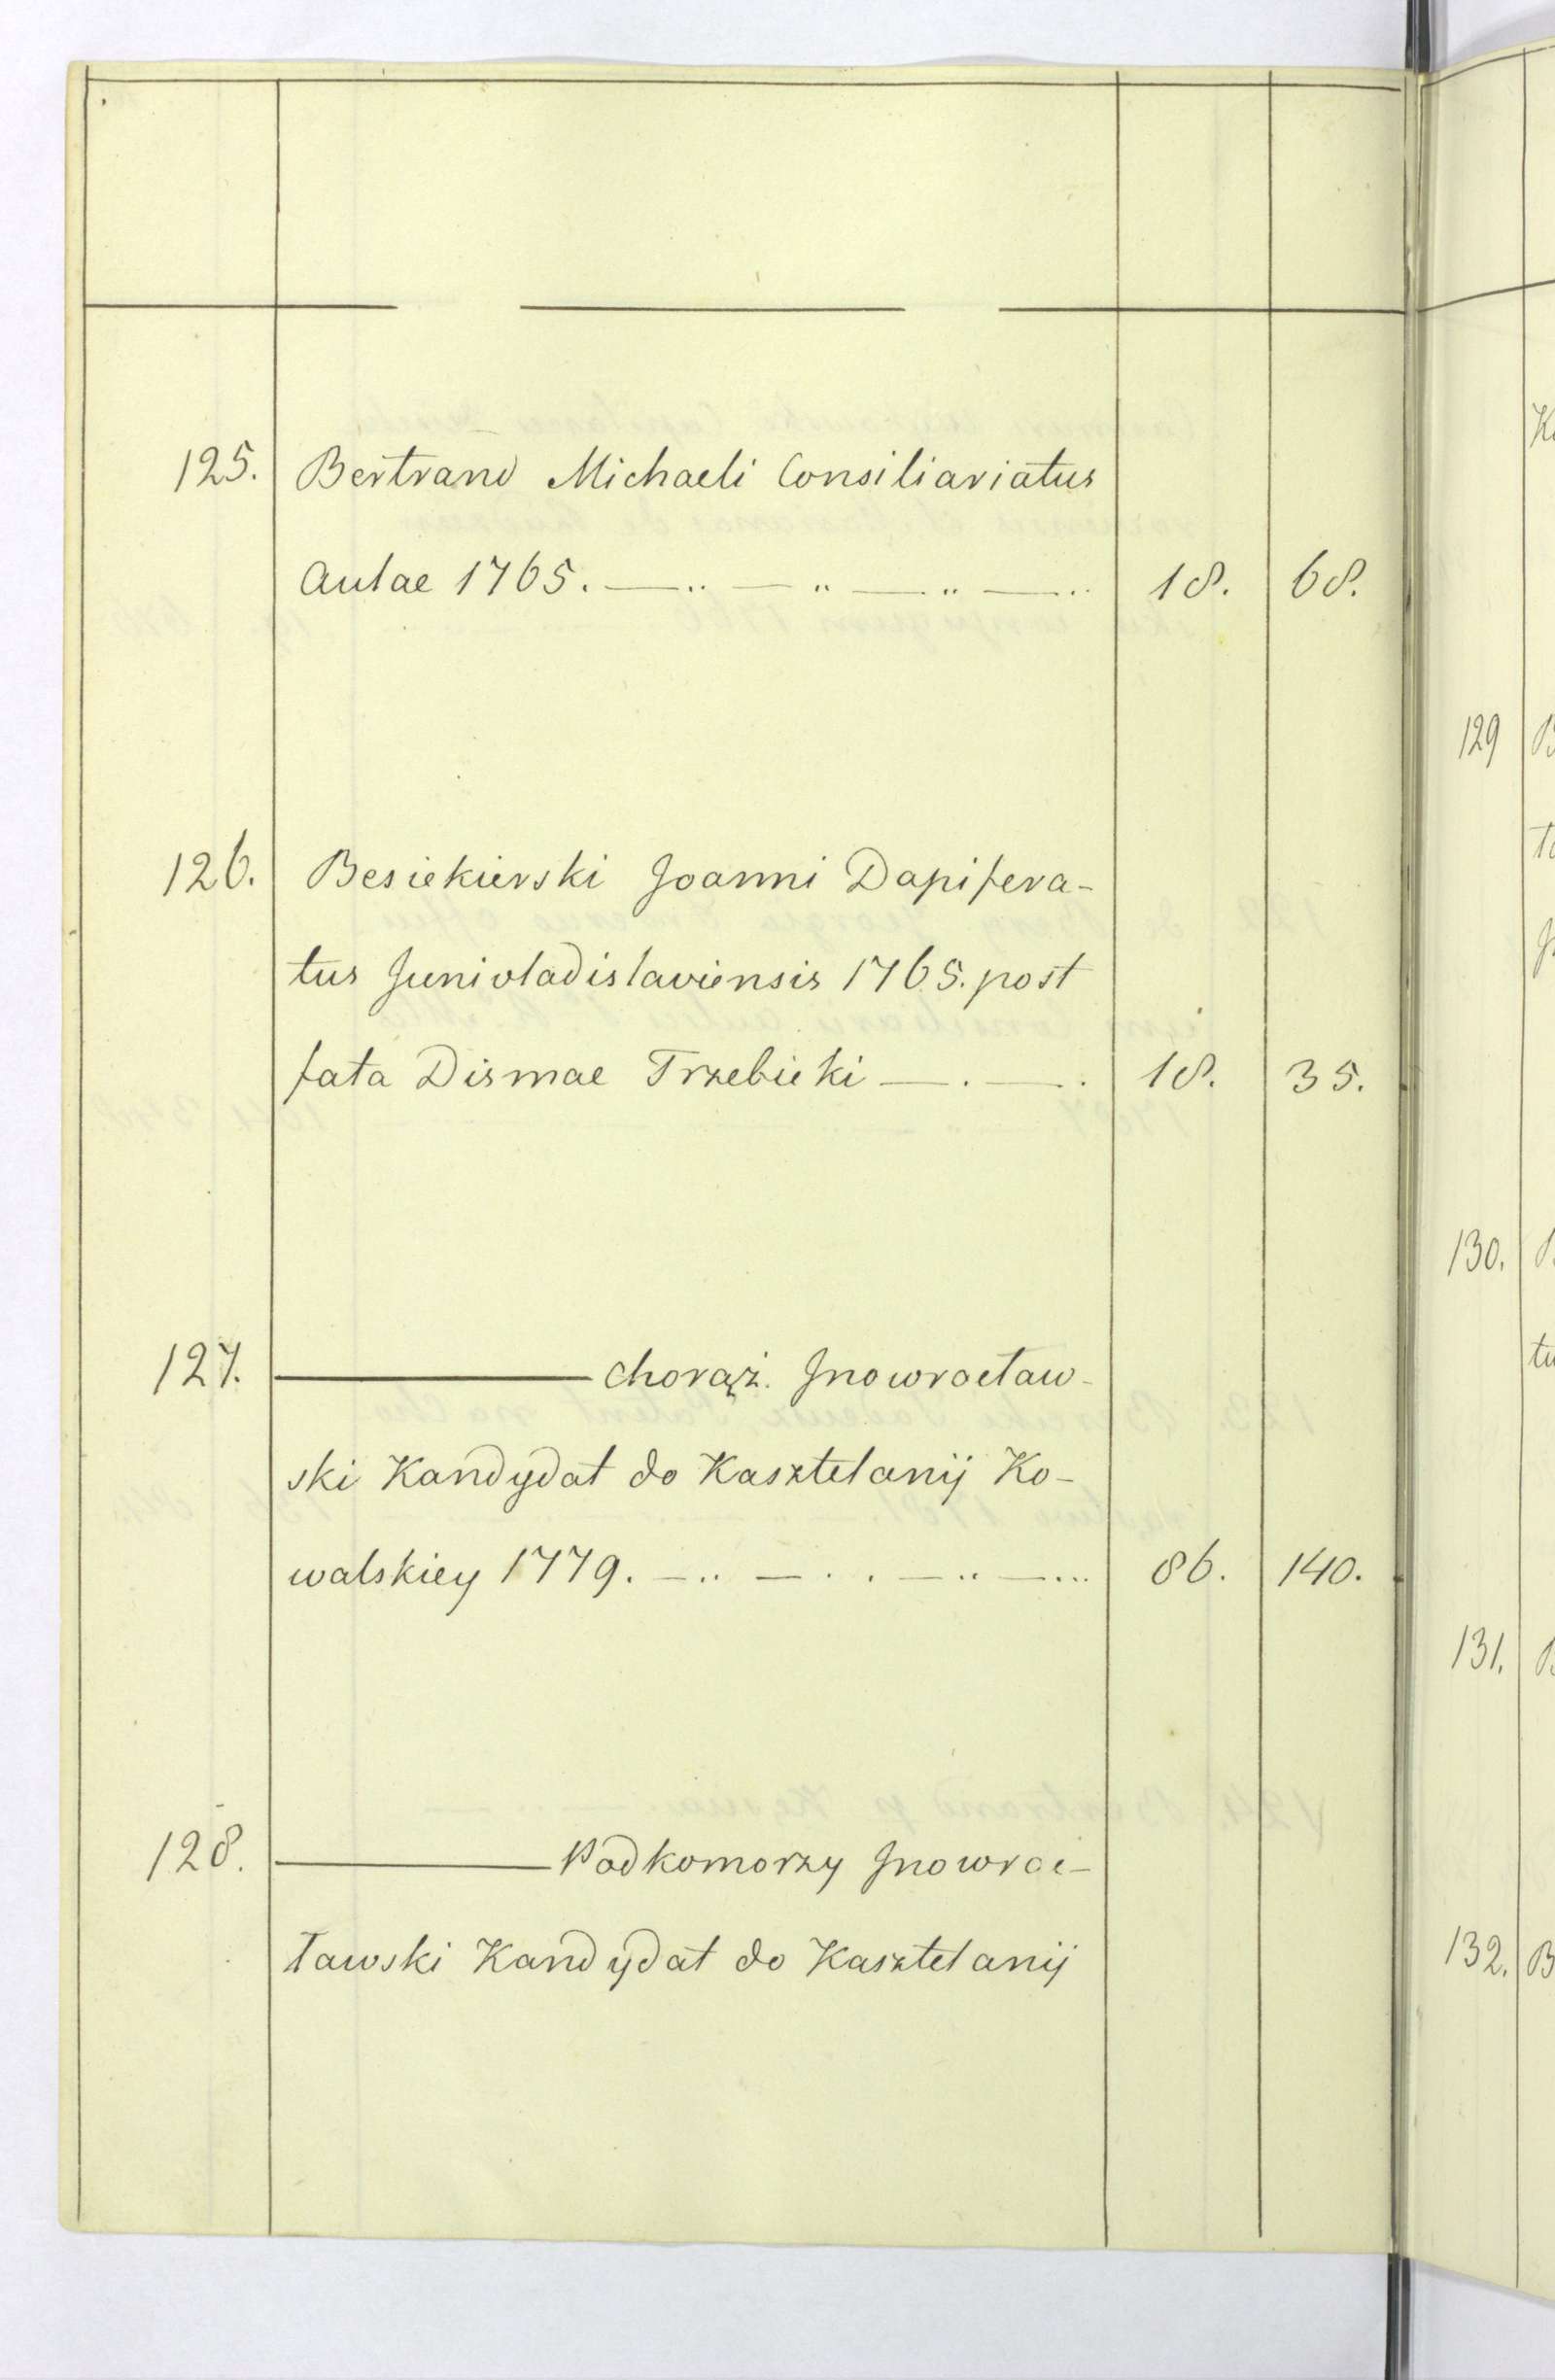 125. Bertrand Michaeli Consiliariatus
Aulae 1765. — .. — .. — .. — .. 18. 68.
126. Besiekierski Joanni Dapifera-
tus Junivladislaviensis 1765. post
fata Dismae Trzebicki — . — . 18. 35.
127. ——— Chorąż. Jnowrocław-
ski Kandydat do Kasztelanij Ko-
walskiey 1779. — .. — . . — .. — ... 86. 140.
128. ——— Podkomorzy Jnowroc-
ławski Kandydat do Kasztelanij
129
130.
131.
132.